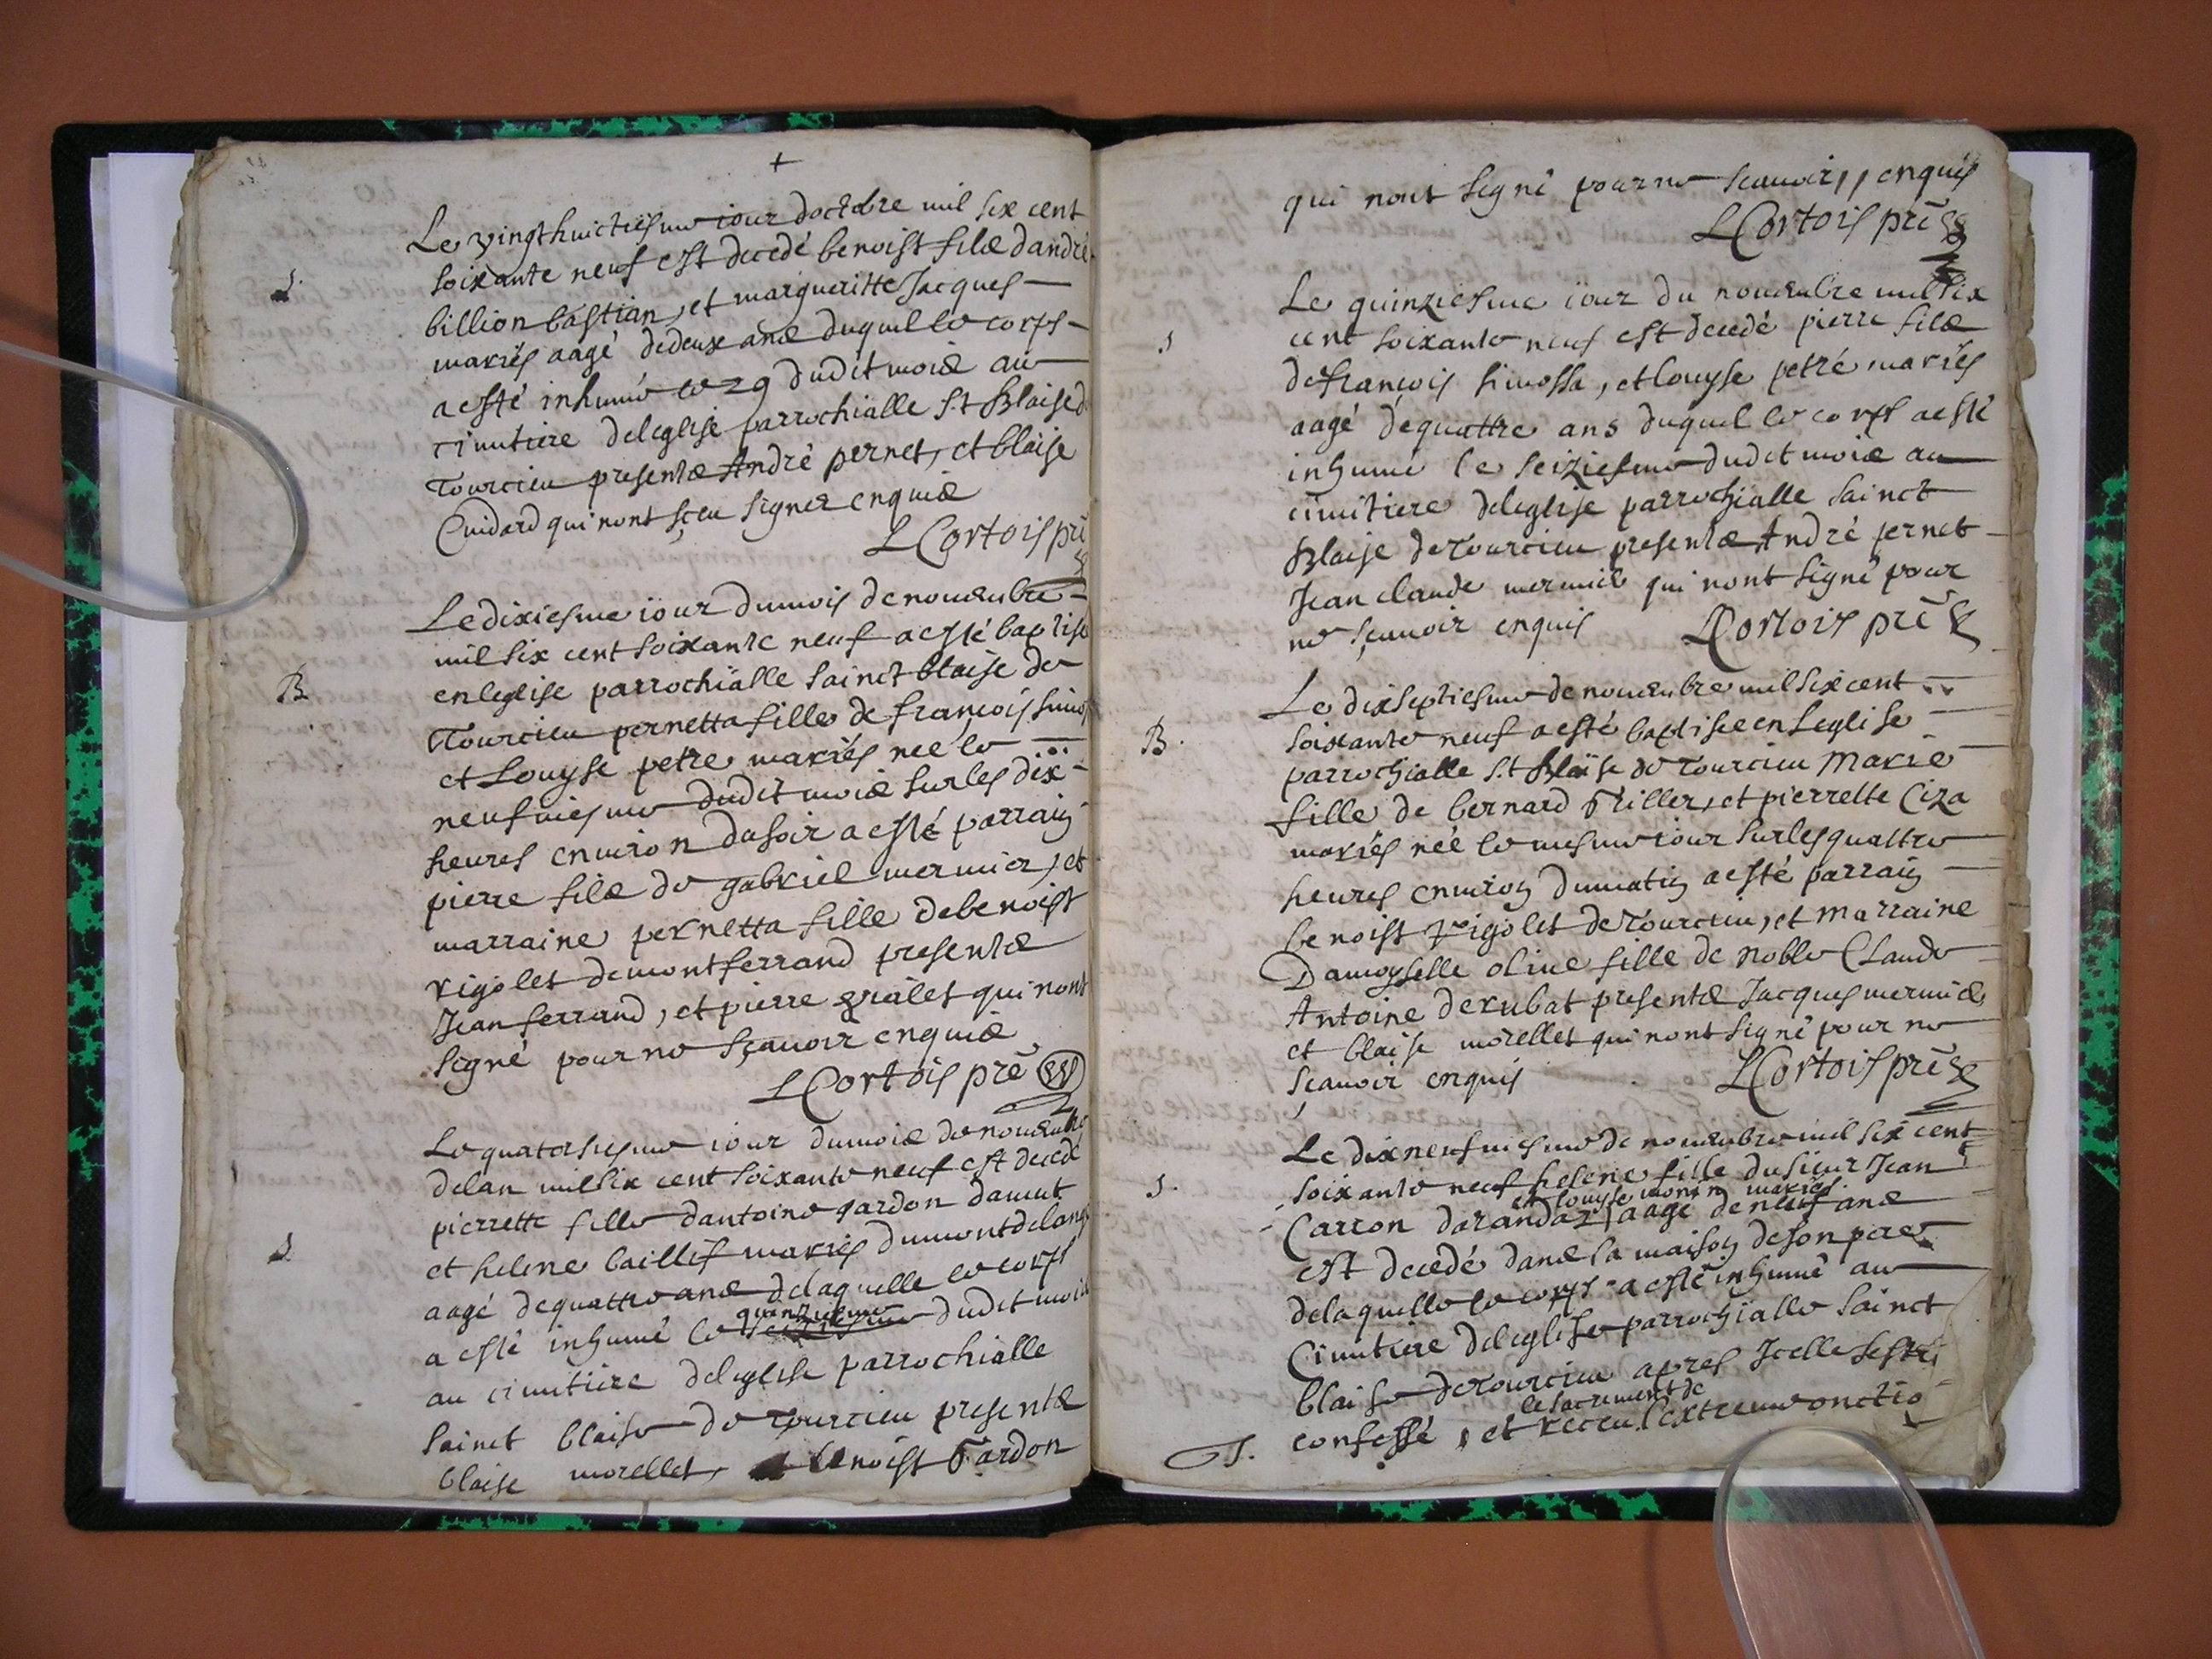 +
Le vingthuictiesme iour doctobre mil six cent
S. soixante neuf est decedé benoist filz dandré
billion bastian, et margueritte Jacques
mariés aagé dedeux ans duquel le corps
a esté inhumé le 29 dudit mois au
cimitiere deleglise parrochialle S.t Blaise d
Tourcieu presents André pernet, et blaise
Cuidard qui nont sçeu signer enquis
L Cortois prē
Le dixiesme iour dumois de nouembre
mil six cent soixante neuf a esté baptise
B. en leglise parrochialle sainct blaise de
Tourcieu pernetta fille de françois simos
et Louyse petre mariés neé le
neufuiesme dudit mois sur les dix
heures enuiron dusoir a esté parrain
pierre filz de gabriel mermier, et
marraine pernetta fille debenoist
rigolet demontferrand presents
Jean ferrand, et pierre gralet qui nont
signé pour ne sçauoir enquis
L Cortois prē
Le quatorsiesme iour dumois de nouembre
delan mil six cent soixante neuf est decedé
pierrette fille dantoine gardon damut
S. et helene baillif mariés dumontdelange
aagé dequattre ans delaquelle le corps
a esté inhumé le quinziesme dudit mois
au cimitiere deleglise parrochialle
sainct blaise de Tourcieu presents
blaise morellet, benoist Gardon
qui nont signé pour ne scauoir,, enquis
L Cortois prē
Le quinziesme iour du nouembre mil six
S. cent soixante neuf est decedé pierre filz
de françois simossa, et louyse petré mariés
aagé de quattre ans duquel le corps a esté
inhumé le seiziesme dudit mois au
cimitiere deleglise parrochialle sainct
Blaise de Tourcieu presents André pernet
Jean claude mermié qui nont signé pour
ne sçauoir enquis L Cortois prē
Le dixseptiesme de nouembre mil six cent
B. soixante neuf a esté baptisee en Leglise
parrochialle S.t Blaise de Tourcieu Marie
fille de bernard Triller, et pierrette Ciza
mariés neé le mesme iour sur les quattre
heures enuiron dumatin a esté parrain
benoist rigolet de Tourcieu, et Marraine
Damoyselle oliue fille de noble Claude
Antoine derubat presents Jacques mermié
et blaise morellet qui nont signé pour ne
scauoir enquis L Cortois prē
Le dixneufuiesme de nouembre mil six cent
S. soixante neuf helene fille dusieur Jean
et louyse monin mariés
Carron darandaz aagé de neuf ans
est decedé dans la maison deson pere
delaquelle le corps a esté inhumé au
Cimitiere deleglise parrochialle sainct
blaise de Tourcieu apres Icelle sestre
le sacrement de
confessé, et receu lextreme onctio